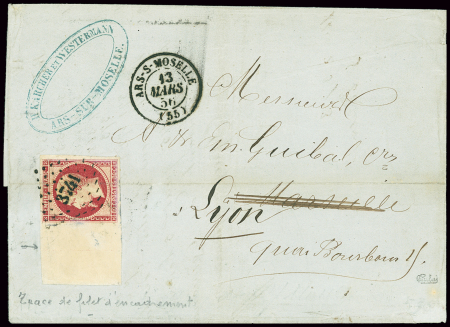 KARCHER ET WESTERMANN
ARS-SUR-MOSELLE.
ARS-S-MOSELLE
13
MARS
56
(55)
Messieurs
Em Guibal,
Marseille
Lyon
quai Bourbon
Trace de filet d'encadrement